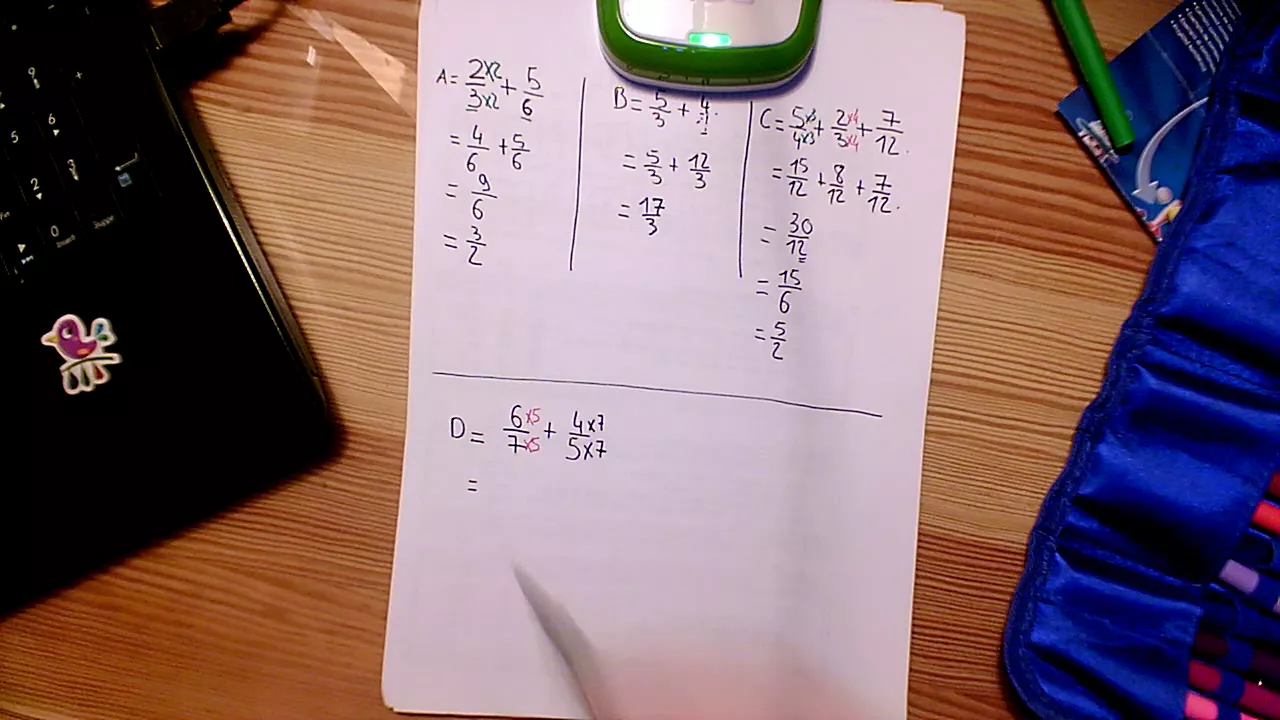 A = 2×2/3×2 + 5/6
= 4/6 + 5/6
= 9/6
= 3/2
B = 5/3 + 4/1
= 5/3 + 12/3
= 17/3
C = 5×3/4×3 + 2×4/3×4 + 7/12
= 15/12 + 8/12 + 7/12
= 30/12
= 15/6
= 5/2
D = 6×5/7×5 + 4×7/5×7
=